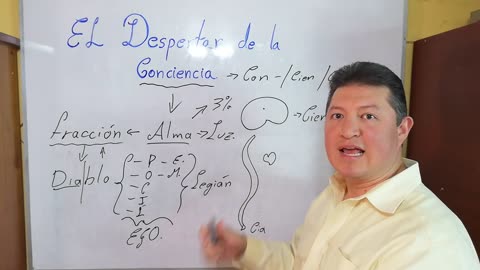 EL Despertar de la
Conciencia → Con - / Cien /
3%
Fracción ← Alma → Luz.
Cien
Diablo
- P - E.
- O - M.
- C
- I
- L
Legián
EGO.
Cia